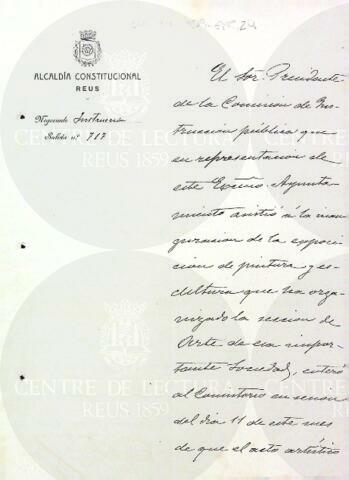 ALCALDÍA CONSTITUCIONAL
REUS
Negociado Instrucción
Boleta n.º 717
El Sor. Presidente
de la Comision de Ins-
trucción pública que
en representacion de
este Excmo. Ayunta-
miento asistió á la inau-
guracion de la exposi-
cion de pintura y es-
cultura que ha orga-
nizado la seccion de
Arte de esa impor-
tante Sociedad, enteró
al Consistorio en sesion
del dia 11 de este mes
de que el acto artístico
CENTRE DE LECTURA
REUS 1859